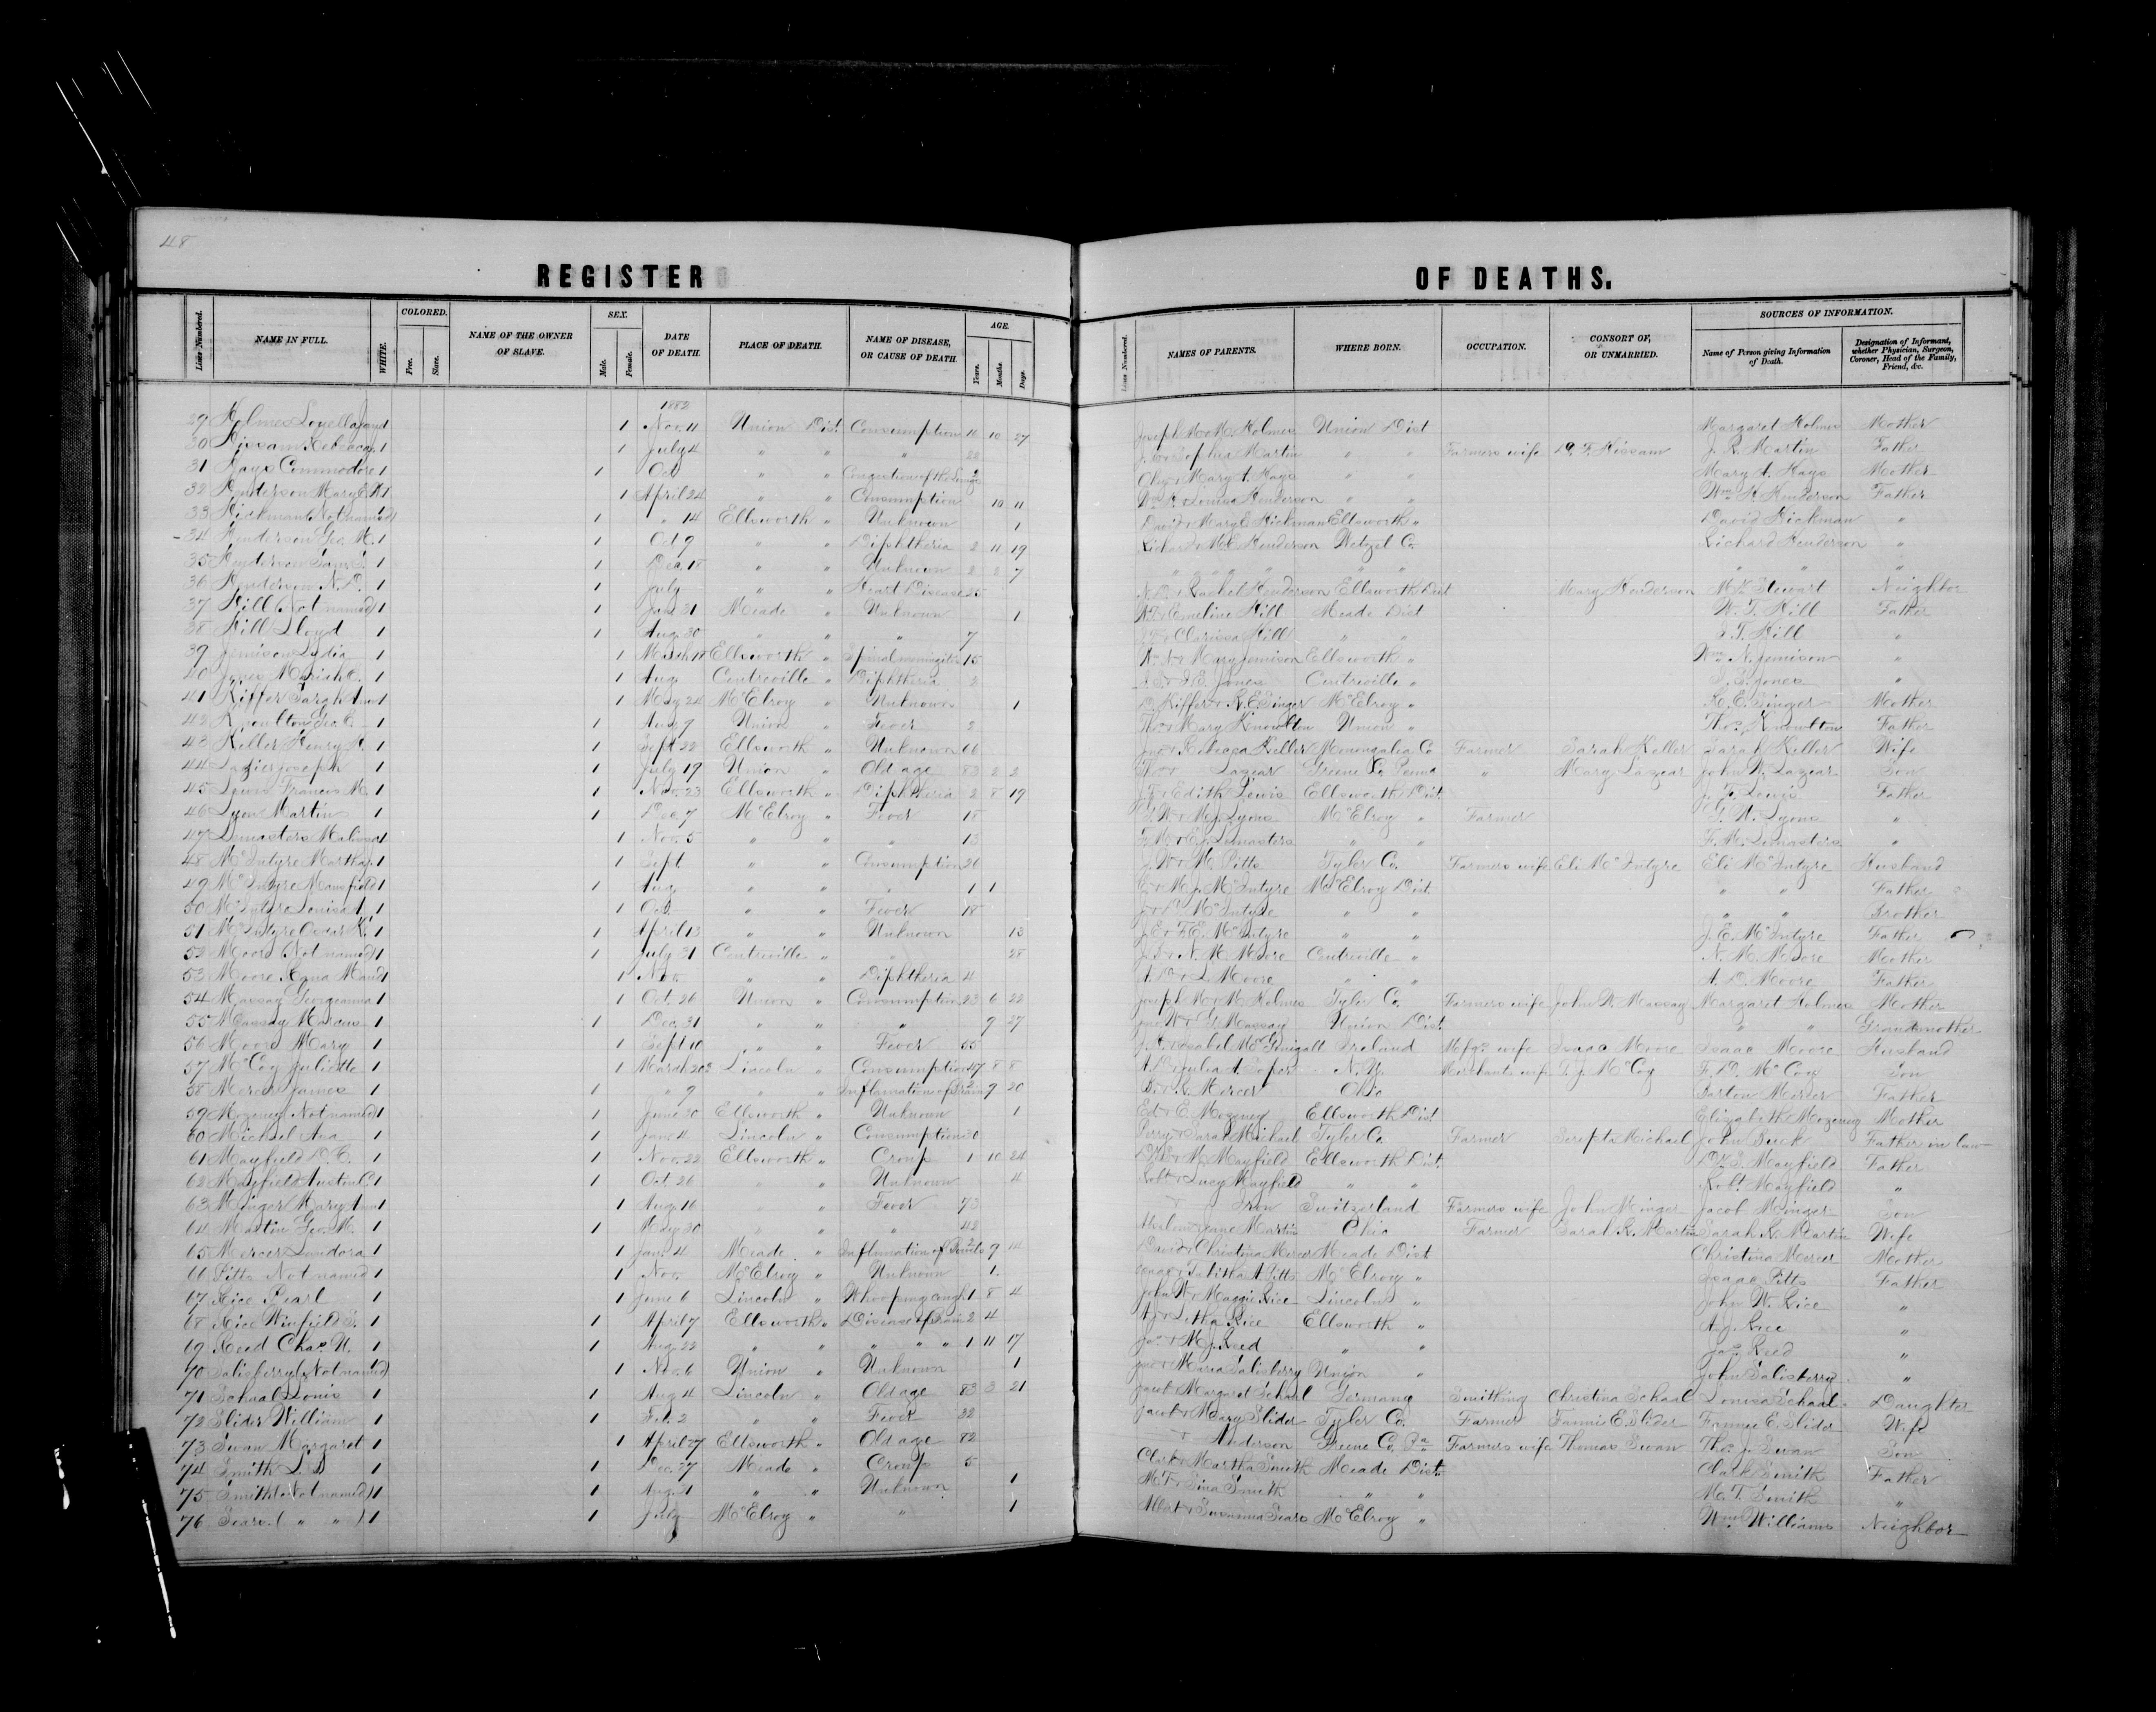 48
REGISTER OF DEATHS.
Lines Numbered. NAME IN FULL. WHITE. COLORED. Free. Slave. NAME OF THE OWNER OF SLAVE. SEX. Male. Female. DATE OF DEATH. PLACE OF DEATH. NAME OF DISEASE, OR CAUSE OF DEATH. AGE. Years. Months. Days. Lines Numbered. NAMES OF PARENTS. WHERE BORN. OCCUPATION. CONSORT OF, OR UNMARRIED. SOURCES OF INFORMATION. Name of Person giving Information of Death. Designation of Informant, whether Physician, Surgeon, Coroner, Head of the Family, Friend, &c.
1882
29 Holmes Louella 1 1 Nov. 11 Union Dist. Consumption 10 27 Joseph M & M. Holmes Union Dist Margaret Holmes Mother
30 Hissam Rebecca 1 1 July 4 " " " 22 Sophia Martin " " Farmers wife Hissam J. R. Martin Father
31 Hays Commodore 1 1 Oct " " Congestion of the Lungs Mary A. Hays " " Mary A. Hays Mother
32 Henderson Mary 1 1 April 24 " " Consumption 10 11 Louisa Henderson " " Wm H Henderson Father
33 Hickman (Not named) 1 1 " 14 Ellsworth " Unknown 1 David & Mary E Hickman Ellsworth " David Hickman "
34 Henderson Geo. M. 1 1 Oct 9 " " Diphtheria 2 11 19 Richard & M. E. Henderson Wetzel Co. Richard Henderson "
35 Henderson 1 1 Dec. 18 " " Unknown 2 2 7 " " " " " " " " "
36 Henderson N. D. 1 1 July " " Heart Disease 25 Rachel Henderson Ellsworth Dist Mary Henderson Stewart Neighbor
37 Hill (Not named) 1 1 Jan 21 Meade " Unknown 1 W. T. & Emeline Hill Meade Dist W. T. Hill Father
38 Hill Lloyd 1 1 Aug. 30 " " " 7 Clarissa Hill " " Hill "
39 Jemison Lydia 1 1 March Ellsworth " Spinal meningitis 15 Wm N. & Mary Jemison Ellsworth " Wm N. Jemison "
40 Jones 1 1 Aug. Centreville " Diphtheria 2 Jones Centreville " Jones "
41 Kiffer Sarah Ann 1 1 May 24 McElroy " Unknown 1 Kiffer & R. E. Singer McElroy " R. E. Singer Mother
42 Knowlton Geo. 1 1 Aug 7 Union " Fever 2 Thos & Mary Knowlton Union " Thos. Knowlton Father
43 Keller Henry 1 1 Sept 22 Ellsworth " Unknown Jno & Rebecca Keller Monongalia Co Farmer Sarah Keller Sarah Keller Wife
44 Lazier Joseph 1 1 July 19 Union " Old age 83 2 2 Lazear Greene Co. Penna " Mary Lazear John W. Lazear Son
45 Lewis Francis M. 1 1 Nov. 23 Ellsworth " Diphtheria 2 8 19 J. F. & Edith Lewis Ellsworth Dist. J. F. Lewis Father
46 Lyon Martin 1 1 Dec 7 McElroy " Fever 18 G. W. & M. J. Lyons McElroy " Farmer G. W. Lyons "
47 Lemasters Malissa 1 1 Nov. 5 " " " 13 F. M. & E. J. Lemasters " " F. M. Lemasters "
48 McIntyre Martha J. 1 1 Sept " " Consumption 26 J. W. & M. Pitts Tyler Co. Farmers wife Eli McIntyre Eli McIntyre Husband
49 McIntyre Mansfield 1 1 Aug. " " " 1 1 E. & M. J. McIntyre McElroy Dist. " " Father
50 McIntyre Louisa A. 1 1 Oct. " " Fever 18 McIntyre " " " " Brother
51 McIntyre Oscar 1 1 April 13 " " Unknown 13 J. E. & F. E. McIntyre " " J. E. McIntyre Father
52 Moore (Not named) 1 1 July 31 Centreville " " 28 N. M. Moore Centreville " N. M. Moore Mother
53 Moore Maud 1 1 Nov. " " Diphtheria 4 A. D. & L. Moore " " A. D. Moore Father
54 Massay Georgeanna 1 1 Oct. 26 Union " Consumption 23 6 22 Joseph M. & M. Holmes Tyler Co. Farmers wife John W. Massay Margaret Holmes Mother
55 Massay Marcus 1 1 Dec. 31 " " " 9 27 Jno W & Massay Union Dist. " " Grandmother
56 Moore Mary 1 1 Sept 10 " " Fever 55 Isabel McGonigall Ireland Mfgr. wife Isaac Moore Isaac Moore Husband
57 McCoy Juliette 1 1 March 20 Lincoln " Consumption 47 8 8 A. D. & Julia A. Soper N. Y. Merchants wife T. J. McCoy F. D. McCoy Son
58 Mercer James 1 1 " 9 " " Inflamation of Brain 2 9 20 B. & R. Mercer Ohio Barton Mercer Father
59 Mozeney (Not named) 1 1 June 20 Ellsworth " Unknown 1 Ed & E. Mozeney Ellsworth Dist. Elizabeth Mozeney Mother
60 Michael Asa 1 1 Jan. 4 Lincoln " Consumption 30 Perry & Sarah Michael Tyler Co. Farmer Michael John Buck Father in law
61 Mayfield 1 1 Nov. 22 Ellsworth " Croup 1 10 24 Mayfield Ellsworth Dist. Mayfield Father
62 Mayfield 1 1 Oct. 26 " " Unknown 4 Robt & Lucy Mayfield " " Robt. Mayfield "
63 Minger Mary Ann 1 1 Aug. 16 " " Fever 73 & Iron Switzerland Farmers wife John Minger Jacob Minger Son
64 Martin Geo. M. 1 1 May 30 " " " 42 Absalom & Jane Martin Ohio Farmer Sarah R. Martin Sarah R. Martin Wife
65 Mercer Lundora 1 1 Jan. 4 Meade " Inflamation of 2 9 14 David & Christina Mercer Meade Dist Christina Mercer Mother
66 Pitts Not named 1 1 Nov. McElroy " Unknown 1 Isaac & Tabitha A. Pitts McElroy " Isaac Pitts Father
67 Rice Pearl 1 1 June 6 Lincoln " Whooping cough 1 8 4 John W. & Maggie Rice Lincoln " John W. Rice "
68 Rice Winfield S. 1 1 April 7 Ellsworth " Disease of Brain 2 4 A. J. & Letha Rice Ellsworth " A. J. Rice "
69 Reed Chas. W. 1 1 Aug. 22 " " " " " 1 11 17 Jas & M. J. Reed " " Jas. Reed "
70 Salisberry (Not named) 1 1 Nov. 6 Union " Unknown 1 Jno & Maria Salisberry Union " John Salisberry "
71 Schaal Louis 1 1 Aug 4 Lincoln " Old age 83 3 21 Jacob & Margaret Schaal Germany Smithing Christina Schaal Louisa Schaal Daughter
72 Slider William 1 1 Feb. 2 " " Fever 32 Jacob & Mary Slider Tyler Co. Farmer Fannie E. Slider Fannie E. Slider Wife
73 Swan Margaret 1 1 April 27 Ellsworth " Old age 82 & Anderson Greene Co. Pa Farmers wife Thomas Swan Thos. J. Swan Son
74 Smith L. D 1 1 Dec. 27 Meade " Croup 5 Clark & Martha Smith Meade Dist. Clark Smith Father
75 Smith (Not named) 1 1 Aug. 31 " " Unknown 1 M. T. & Sina Smith " " M. T. Smith "
76 Sears ( " " ) 1 1 July McElroy " " 1 Albert & Susanna Sears McElroy " Wm Williams Neighbor